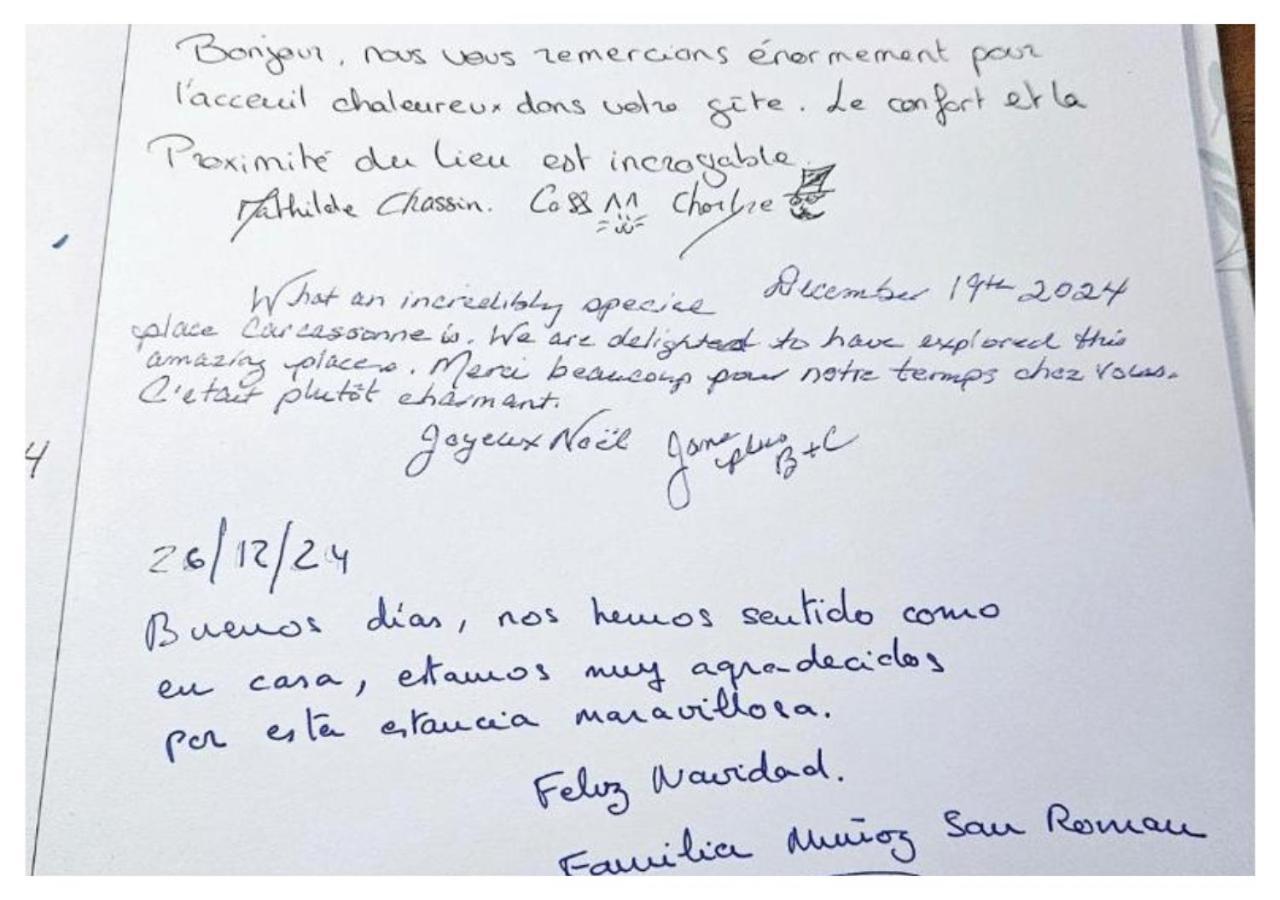 Bonjour, nous vous remercions énormement pour
l'acceuil chaleureux dans votre gîte. Le confort et la
Proximité du lieu est incroyable.
Mathilde Chassin.
What an incredibly special December 19th 2024
place Carcassonne is. We are delighted to have explored this
amazing places. Merci beaucoup pour notre temps chez vous.
C'etait plutôt charmant.
Joyeux Noël Jane plus B+C
4
26/12/24
Buenos días, nos hemos sentido como
en casa, estamos muy agradecidos
por está estancia maravillosa.
Feliz Navidad.
Familia Muñoz San Roman